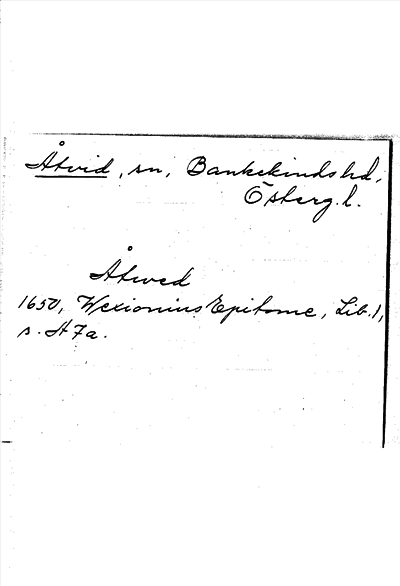 Åtvid, sn, Bankekindshd,
Österg. l.
Åtwed
1650, Wexionius Epitome, Lib. 1,
s. H 7a.